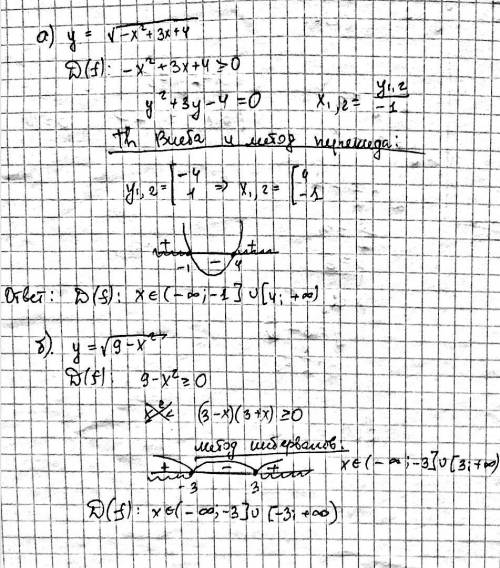 а) y = √-x²+3x+4
D(f): -x²+3x+4 ≥ 0
y²+3y-4=0 x₁,₂ = y₁,₂/-1
Th Виета и метод переброса:
y₁,₂ = [-4 1 ⇒ x₁,₂ = [4 -1
+ - +
-1 4
Ответ: D(f): x ∈ (-∞; -1] ∪ [4; +∞)
б). y = √9-x²
D(f): 9-x² ≥ 0
(3-x)(3+x) ≥ 0
метод интервалов:
+ - + x ∈ (-∞; -3] ∪ [3; +∞)
-3 3
D(f): x ∈ (-∞; -3] ∪ [-3; +∞)